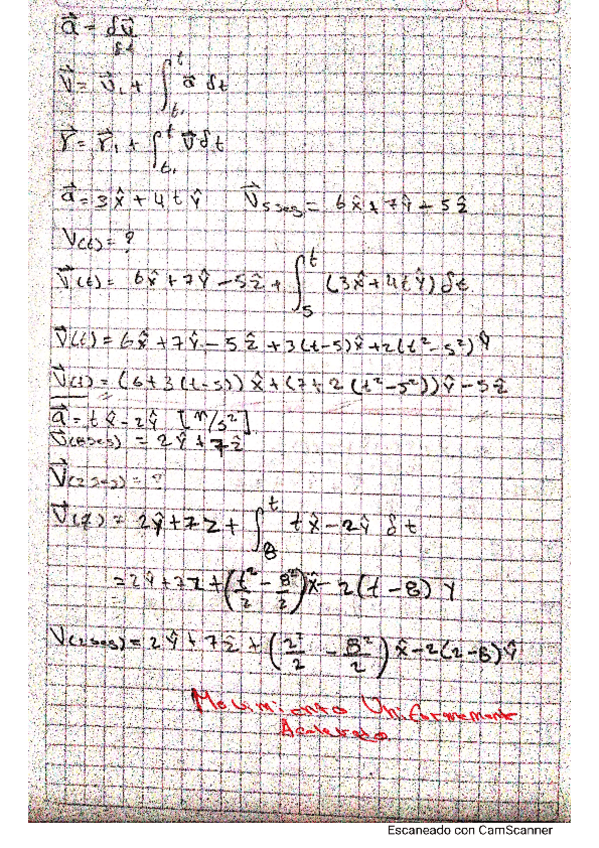 a⃗ = δv⃗/δt
V⃗ = v⃗₁ + ∫ₜ₁ᵗ a⃗ δt
r⃗ = r⃗₁ + ∫ₜ₁ᵗ v⃗ δt
a⃗ = 3x̂ + 4tŷ V⃗₅seg = 6x̂ + 7ŷ - 5ẑ
V(t) = ?
V⃗(t) = 6x̂ + 7ŷ - 5ẑ + ∫₅ᵗ (3x̂ + 4tŷ) δt
V⃗(t) = 6x̂ + 7ŷ - 5ẑ + 3(t-5)x̂ + 2(t² - 5²)ŷ
V⃗(t) = (6 + 3(t-5))x̂ + (7 + 2(t² - 5²))ŷ - 5ẑ
a⃗ = tx̂ - 2ŷ [m/s²]
V⃗(8seg) = 2ŷ + 7ẑ
V⃗(2seg) = ?
V⃗(t) = 2ŷ + 7z + ∫₈ᵗ tx̂ - 2ŷ δt
= 2ŷ + 7z + (t²/2 - 8²/2)x̂ - 2(t-8)y
V(2seg) = 2ŷ + 7ẑ + (2²/2 - 8²/2)x̂ - 2(2-8)ŷ
Movimiento Uniformemente
Acelerado
Escaneado con CamScanner